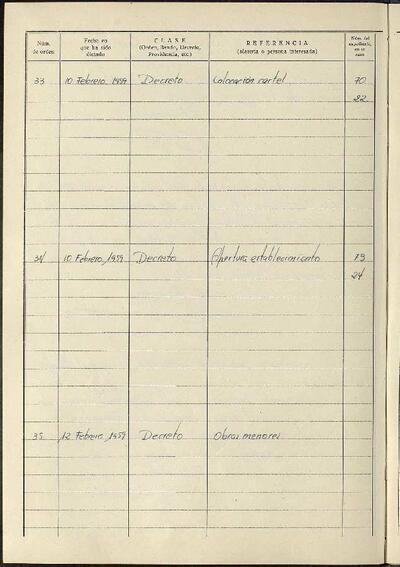 Núm. de orden
Fecha en que ha sido dictado
CLASE
(Orden, Bando, Decreto, Providencia, etc.)
REFERENCIA
(Materia o persona interesada)
Núm. del expediente, en su caso
33 10 Febrero, 1959 Decreto Colocación cartel 70
22
34 10 Febrero, 1959 Decreto Apertura establecimiento 73
24
35 12 Febrero, 1959 Decreto Obras menores